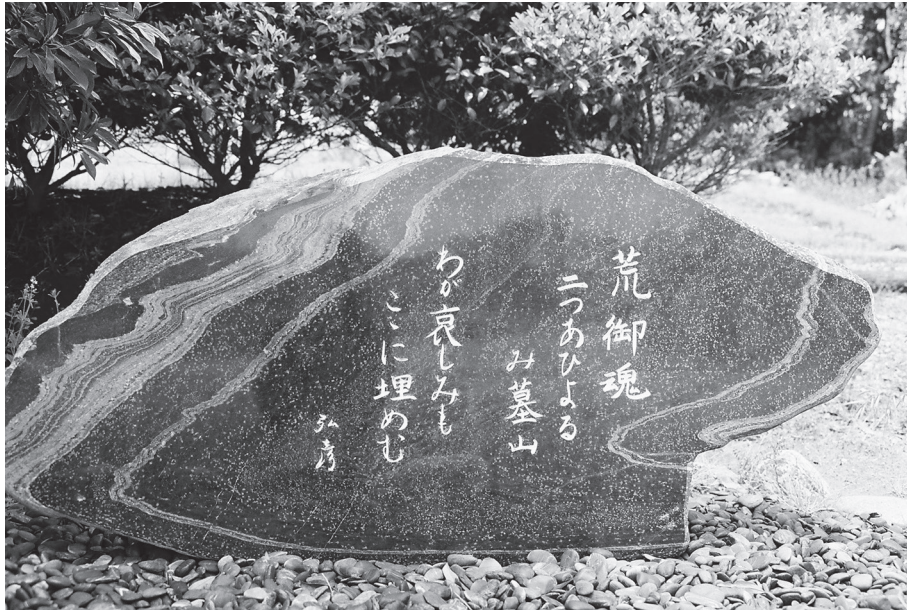 荒御魂
二つあひよる
み墓山
わが哀しみも
ここに埋めむ
弘彦